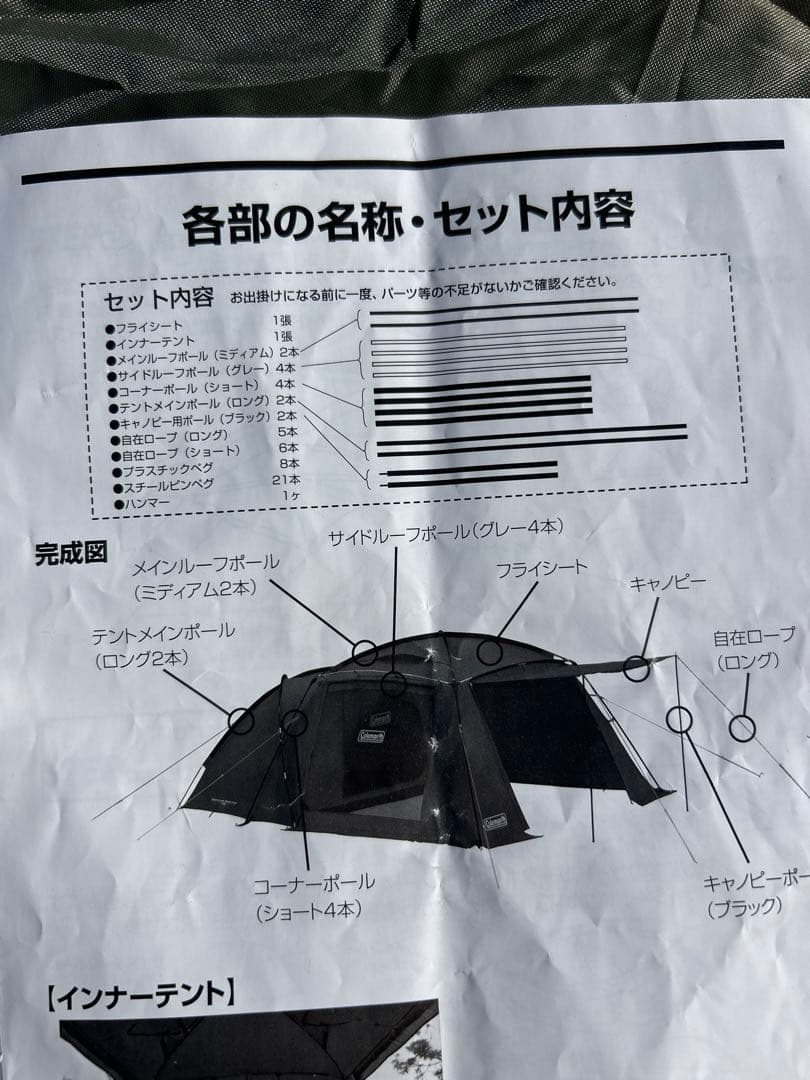 各部の名称・セット内容
セット内容 お出掛けになる前に一度、パーツ等の不足がないかご確認ください。
●フライシート 1張
●インナーテント 1張
●メインルーフポール（ミディアム）2本
●サイドルーフポール（グレー）4本
●コーナーポール（ショート） 4本
●テントメインポール（ロング）2本
●キャノピー用ポール（ブラック）2本
●自在ロープ（ロング） 5本
●自在ロープ（ショート） 6本
●プラスチックペグ 8本
●スチールピンペグ 21本
●ハンマー 1ヶ
完成図
サイドルーフポール（グレー4本）
メインルーフポール
（ミディアム2本）
フライシート
キャノピー
テントメインポール
（ロング2本）
自在ロープ
（ロング）
Coleman
Coleman
コーナーポール
（ショート4本）
キャノピーポー
（ブラック）
【インナーテント】